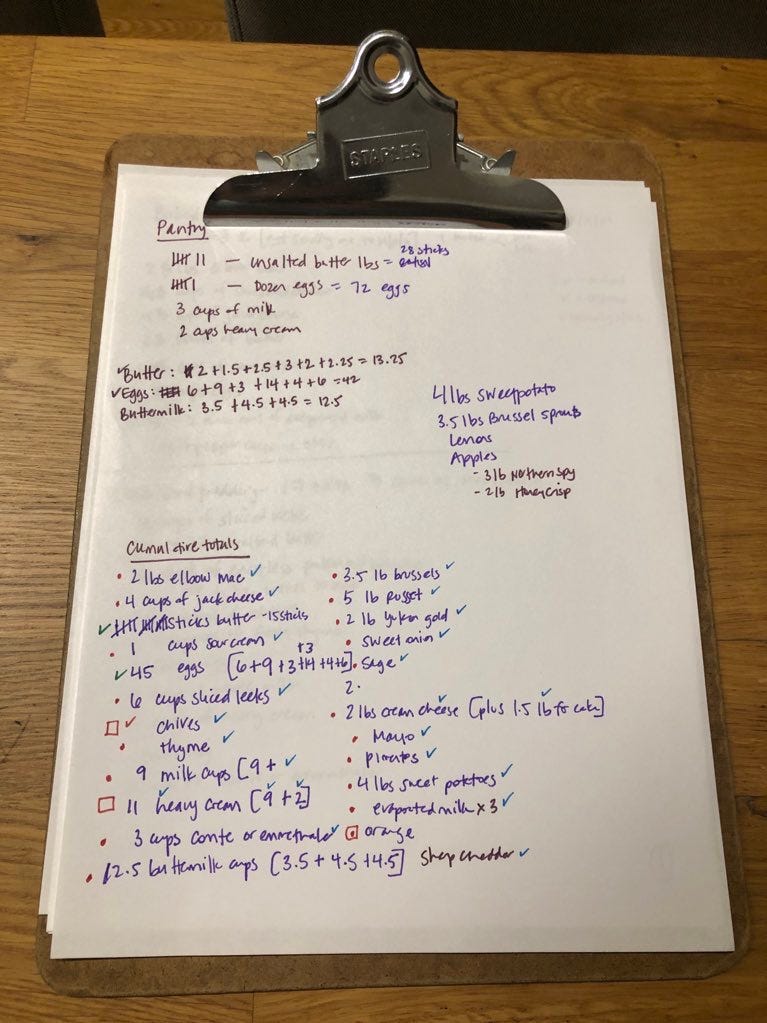 STAPLES
Pantry
|||| || — unsalted butter lbs = 28 sticks
|||| | — Dozen eggs = 72 eggs
3 cups of milk
2 cups heavy cream
✓Butter: 2 + 1.5 + 2.5 + 3 + 2 + 2.25 = 13.25
✓Eggs: 6 + 9 + 3 + 14 + 4 + 6 = 42
Buttermilk: 3.5 + 4.5 + 4.5 = 12.5
4 lbs sweet potato
3.5 lbs Brussel sprouts
Lemons
Apples
- 3 lb Northern spy
- 2 lb Honeycrisp
Cumulative totals
• 2 lbs elbow mac ✓
• 4 cups of jack cheese ✓
✓ sticks butter - 15 sticks
• 1 cups sour cream ✓
✓ 45 eggs [6+9+3+14+4+6] +3
• 6 cups sliced leeks ✓
☐ ✓ chives ✓
• thyme ✓
• 9 milk cups [9 + ✓
☐ 11 heavy cream [9 + 2] ✓
• 3 cups comte or emmetnale ✓
• 12.5 buttermilk cups [3.5 + 4.5 + 4.5]
• 3.5 lb brussels ✓
• 5 lb Russet ✓
• 2 lb yukon gold ✓
• sweet onion ✓
• Sage ✓
2.
• 2 lbs cream cheese [plus 1.5 lb for cake] ✓
• Mayo ✓
• pimentos ✓
• 4 lbs sweet potatoes ✓
• evaporated milk x 3 ✓
☐ orange
Sharp cheddar ✓